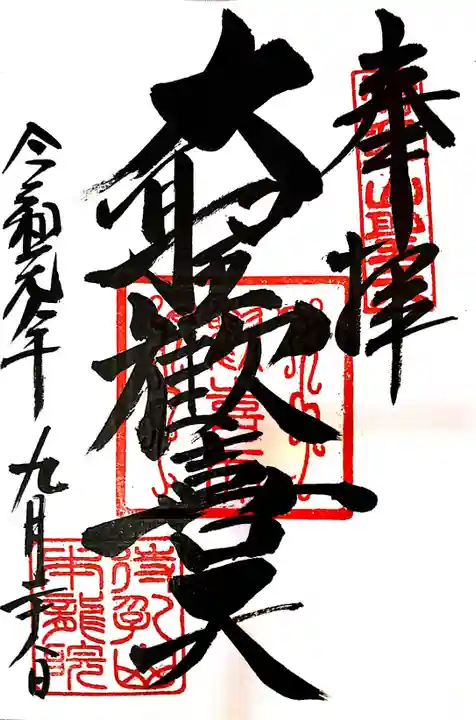 奉拝
大聖歓喜天
令和元年 九月十六日
待乳山
本龍院